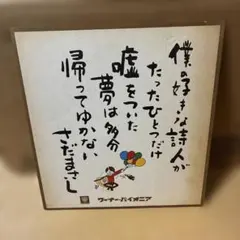 僕の好きな詩人が
たったひとつだけ
嘘をついた
夢は多分
帰ってゆかない
さだまさし
ワーナー・パイオニア